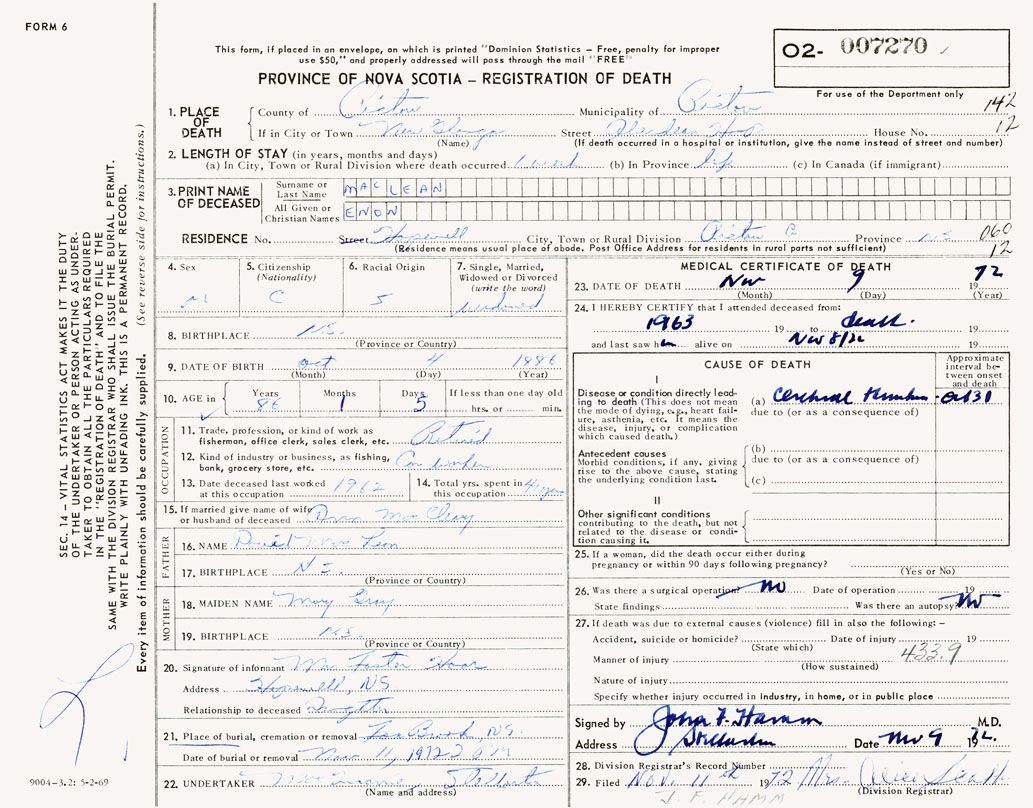 FORM 6
This form, if placed in an envelope, on which is printed "Dominion Statistics – Free, penalty for improper
use $50," and properly addressed will pass through the mail "FREE"
PROVINCE OF NOVA SCOTIA – REGISTRATION OF DEATH
02- 007270
For use of the Department only
142
12
1. PLACE OF DEATH
County of Pictou Municipality of Pictou
If in City or Town New Glasgow Street Aberdeen Hosp House No.
(Name) (If death occurred in a hospital or institution, give the name instead of street and number)
2. LENGTH OF STAY (in years, months and days)
(a) In City, Town or Rural Division where death occurred 1 week (b) In Province life (c) In Canada (if immigrant)
3. PRINT NAME OF DECEASED
Surname or Last Name MACLEAN
All Given or Christian Names ENON
RESIDENCE No. Street Hopewell City, Town or Rural Division Pictou Province NS
(Residence means usual place of abode. Post Office Address for residents in rural parts not sufficient)
060
12
4. Sex M
5. Citizenship (Nationality) C
6. Racial Origin S
7. Single, Married, Widowed or Divorced (write the word) widowed
8. BIRTHPLACE N.S.
(Province or Country)
9. DATE OF BIRTH Oct 4 1886
(Month) (Day) (Year)
10. AGE in Years 86 Months 1 Days 5 If less than one day old hrs. or min.
OCCUPATION
11. Trade, profession, or kind of work as
fisherman, office clerk, sales clerk, etc. Retired
12. Kind of industry or business, as fishing,
bank, grocery store, etc. Car worker
13. Date deceased last worked
at this occupation 1962
14. Total yrs. spent in
this occupation
15. If married give name of wife
or husband of deceased
FATHER
16. NAME David Mac Lean
17. BIRTHPLACE N.S.
(Province or Country)
MOTHER
18. MAIDEN NAME Mary Gray
19. BIRTHPLACE N.S.
(Province or Country)
20. Signature of informant Mrs Foster Hoar
Address Hopewell, NS
Relationship to deceased Daughter
21. Place of burial, cremation or removal , NS.
Date of burial or removal Nov 11, 1972
22. UNDERTAKER
(Name and address)
MEDICAL CERTIFICATE OF DEATH
23. DATE OF DEATH Nov 9 19 72
(Month) (Day) (Year)
24. I HEREBY CERTIFY that I attended deceased from:
1963 19 to death. 19
and last saw him alive on Nov 8/72 19
CAUSE OF DEATH
Approximate interval between onset and death
I
Disease or condition directly lead-
ing to death (This does not
mean the mode of dying, e.g., heart fail-
ure, asthenia, etc. It means the
disease, injury, or complication
which caused death.)
(a) Cerebral Oct 31
due to (or as a consequence of)
Antecedent causes
Morbid conditions, if any, giving
rise to the above cause, stating
the underlying condition last.
(b)
due to (or as a consequence of)
(c)
II
Other significant conditions
contributing to the death, but not
related to the disease or condi-
tion causing it.
25. If a woman, did the death occur either during
pregnancy or within 90 days following pregnancy?
(Yes or No)
26. Was there a surgical operation? No Date of operation 19
State findings Was there an autopsy? No
27. If death was due to external causes (violence) fill in also the following: –
Accident, suicide or homicide? Date of injury 19
(State which)
Manner of injury 433.9
(How sustained)
Nature of injury
Specify whether injury occurred in industry, in home, or in public place
Signed by John F. Hamm M.D.
Address Stellarton Date Nov 9 1972.
28. Division Registrar's Record Number
29. Filed Nov. 11th 1972 Mrs.
(Division Registrar)
J. F. HAMM
SEC. 14 – VITAL STATISTICS ACT MAKES IT THE DUTY
OF THE UNDERTAKER OR PERSON ACTING AS UNDER-
TAKER TO OBTAIN ALL THE PARTICULARS REQUIRED
IN THE "REGISTRATION OF DEATH" AND TO FILE THE
SAME WITH THE DIVISION REGISTRAR WHO SHALL ISSUE THE BURIAL PERMIT.
WRITE PLAINLY WITH UNFADING INK. THIS IS A PERMANENT RECORD.
Every item of information should be carefully supplied. (See reverse side for instructions.)
9004-3.2: 5-2-69